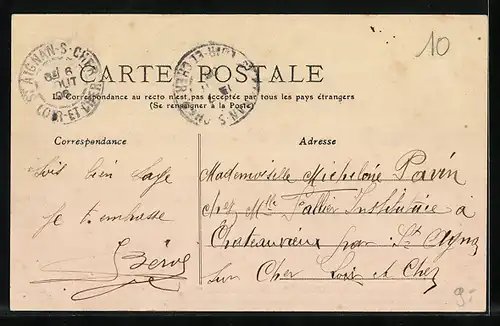 10
ST AIGNAN-S-CHER
LOIR-ET-CHER
CARTE POSTALE
La Correspondance au recto n'est pas acceptée par tous les pays étrangers
(Se renseigner à la Poste)
Correspondance
Adresse
Sois bien sage
Je t'embrasse
Mademoiselle Pavin
chez Mlle Tallier Institutrice à
Chateauvieux par St Aignan
sur Cher Loir et Cher
9.-